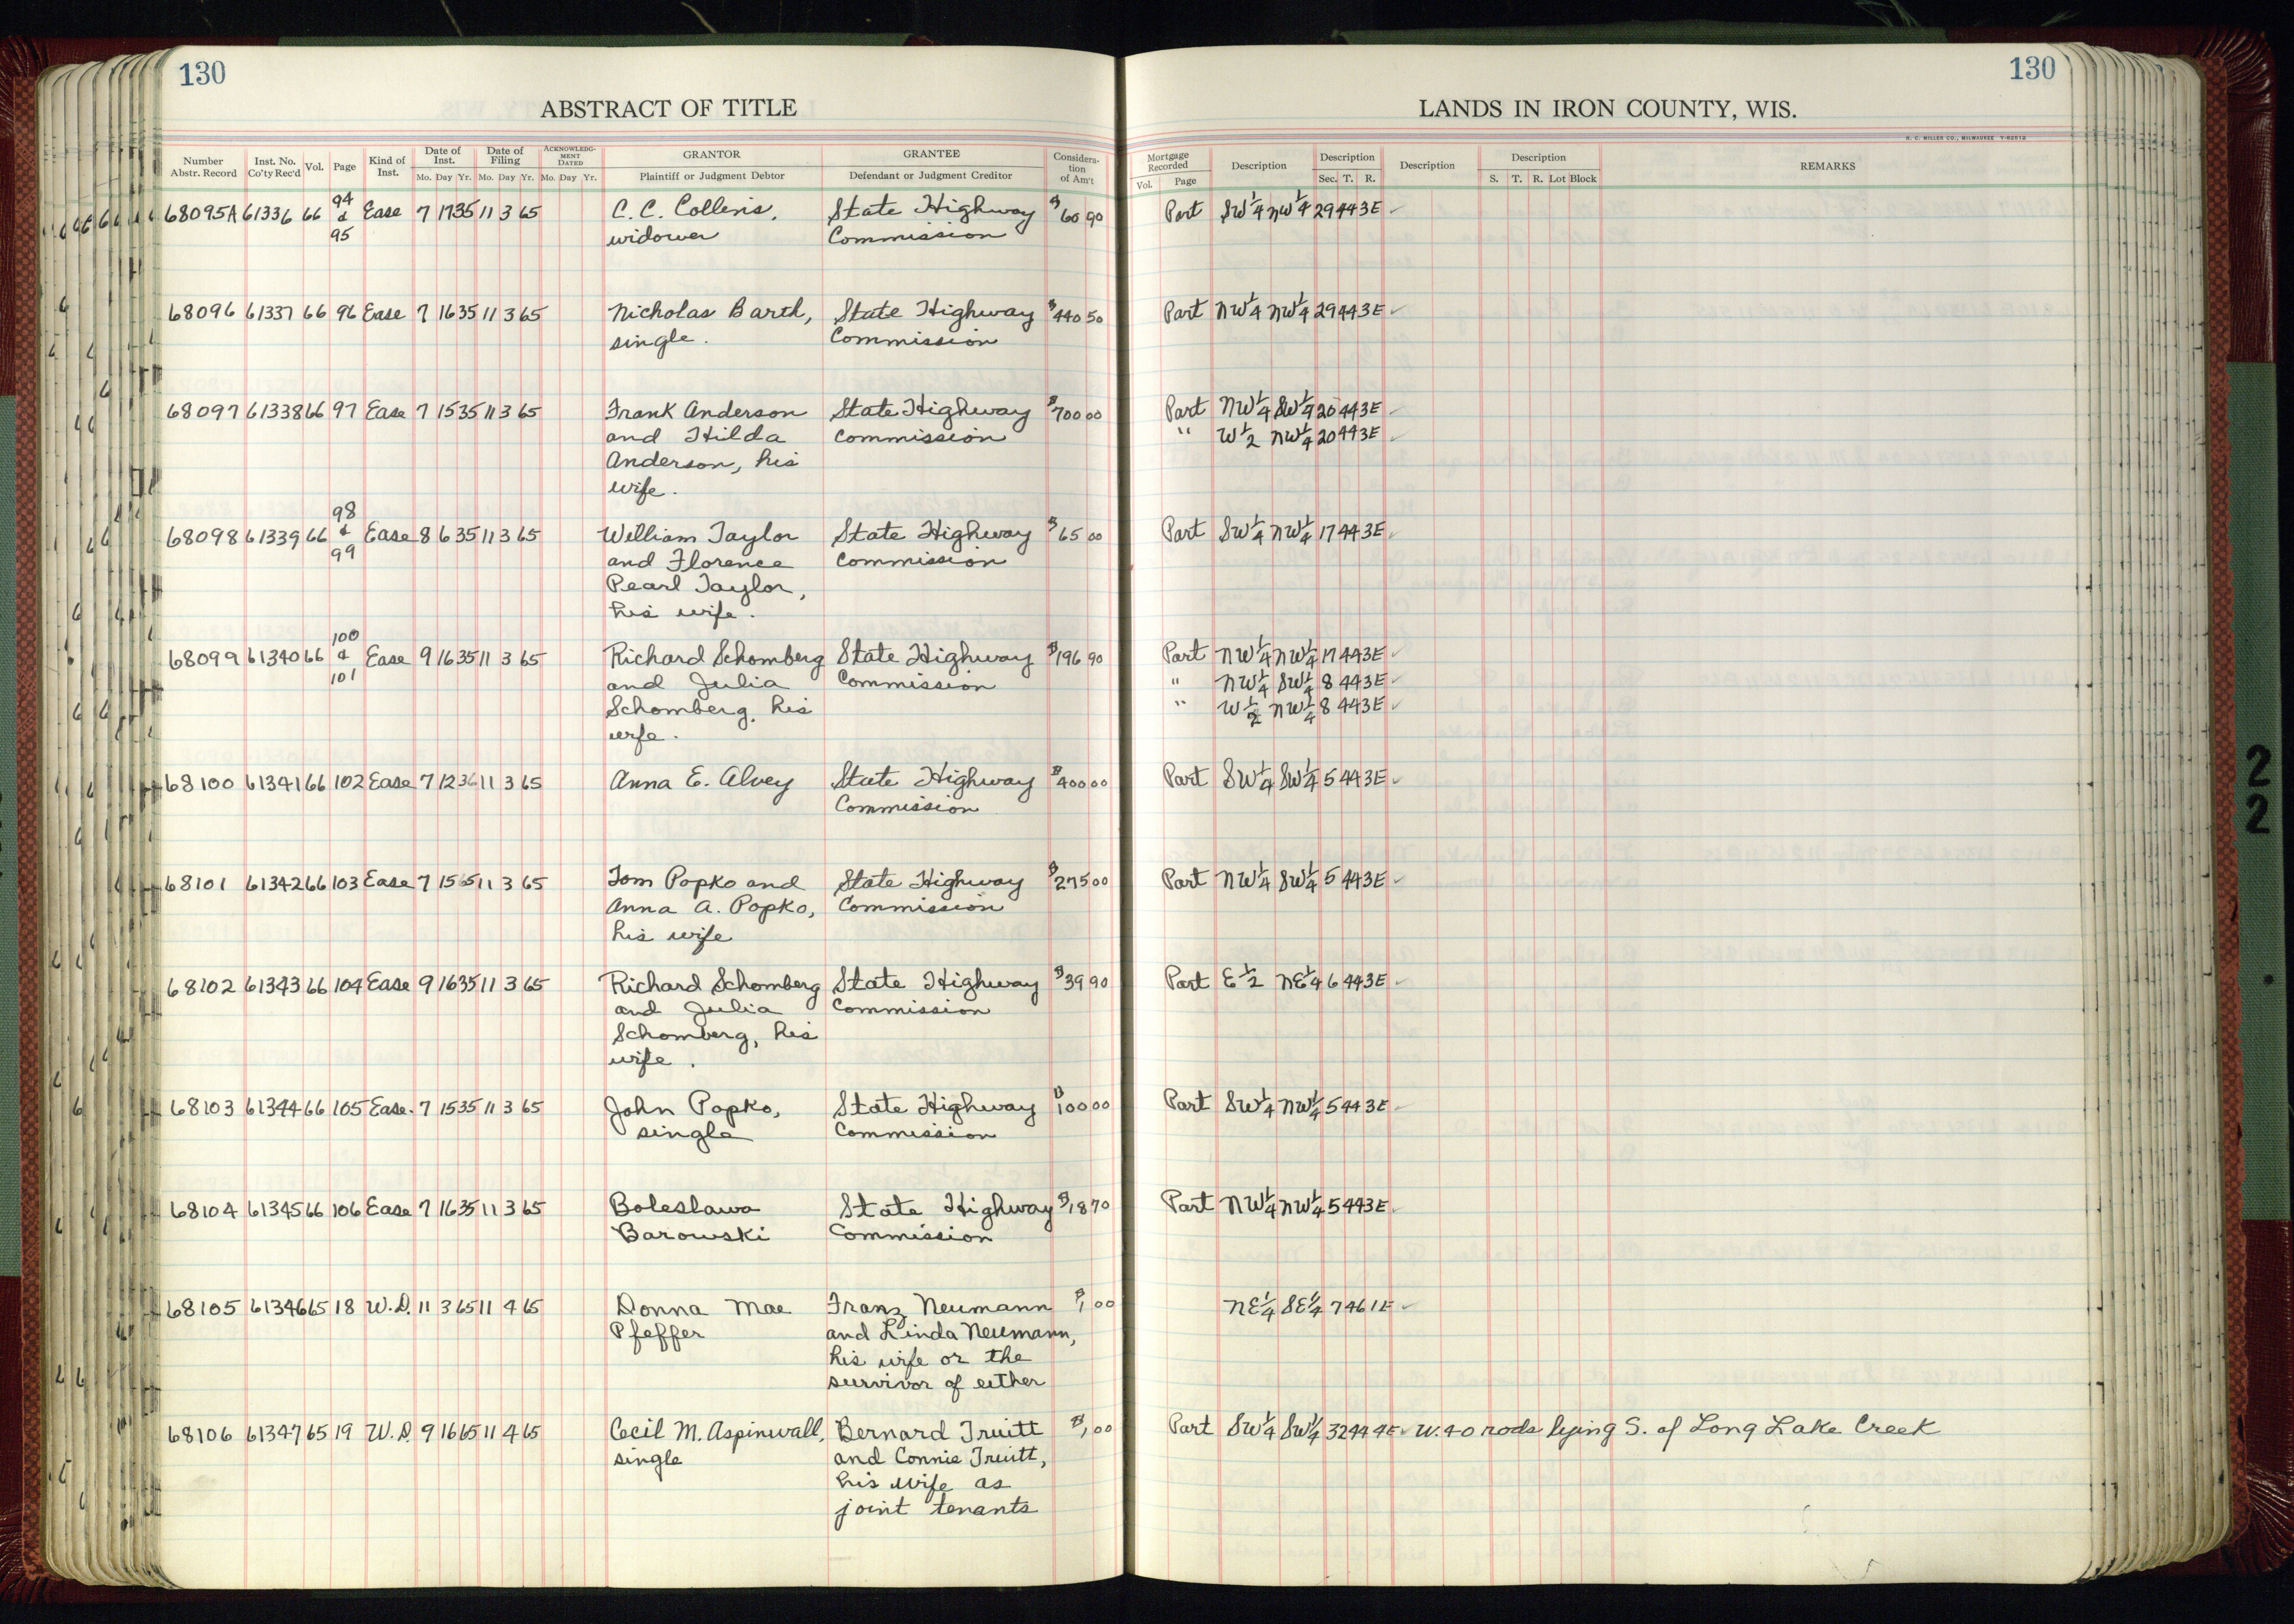 130
ABSTRACT OF TITLE
Number Abstr. Record | Inst. No. Co'ty Rec'd | Vol. | Page | Kind of Inst. | Date of Inst. Mo. Day Yr. | Date of Filing Mo. Day Yr. | ACKNOWLEDGMENT DATED Mo. Day Yr. | GRANTOR Plaintiff or Judgment Debtor | GRANTEE Defendant or Judgment Creditor | Consideration of Am't
130
LANDS IN IRON COUNTY, WIS.
H. C. MILLER CO., MILWAUKEE
Mortgage Recorded Vol. Page | Description | Description Sec. T. R. | Description | Description S. T. R. Lot Block | REMARKS
68095A 61336 66 94 & 95 Ease 7 17 35 11 3 65 C. C. Collens, State Highway $60 90 Part SW 1/4 NW 1/4 29 44 3E ✓
widower Commission
68096 61337 66 96 Ease 7 16 35 11 3 65 Nicholas Barth, State Highway $440 50 Part NW 1/4 NW 1/4 29 44 3E ✓
single. Commission
68097 61338 66 97 Ease 7 15 35 11 3 65 Frank Anderson State Highway $700 00 Part NW 1/4 SW 1/4 20 44 3E ✓
and Hilda Commission " W 1/2 NW 1/4 20 44 3E ✓
Anderson, his
wife.
68098 61339 66 98 & 99 Ease 8 6 35 11 3 65 William Taylor State Highway $65 00 Part SW 1/4 NW 1/4 17 44 3E ✓
and Florence Commission
Pearl Taylor,
his wife.
68099 61340 66 100 & 101 Ease 9 16 35 11 3 65 Richard Schomberg State Highway $196 90 Part NW 1/4 NW 1/4 17 44 3E ✓
and Julia Commission " NW 1/4 SW 1/4 8 44 3E ✓
Schomberg, his " W 1/2 NW 1/4 8 44 3E ✓
wife.
68100 61341 66 102 Ease 7 12 36 11 3 65 Anna E. Alvey State Highway $400 00 Part SW 1/4 SW 1/4 5 44 3E ✓
Commission
68101 61342 66 103 Ease 7 15 65 11 3 65 Tom Popko and State Highway $275 00 Part NW 1/4 SW 1/4 5 44 3E ✓
Anna A. Popko, Commission
his wife
68102 61343 66 104 Ease 9 16 35 11 3 65 Richard Schomberg State Highway $39 90 Part E 1/2 NE 1/4 6 44 3E ✓
and Julia Commission
Schomberg, his
wife.
68103 61344 66 105 Ease. 7 15 35 11 3 65 John Popko, State Highway $100 00 Part SW 1/4 NW 1/4 5 44 3E ✓
single Commission
68104 61345 66 106 Ease 7 16 35 11 3 65 Boleslawa State Highway $18 70 Part NW 1/4 NW 1/4 5 44 3E ✓
Barowski Commission
68105 61346 65 18 W.D. 11 3 65 11 4 65 Donna Mae Franz Neumann $1 00 NE 1/4 SE 1/4 7 46 1E ✓
Pfeffer and Linda Neumann,
his wife or the
survivor of either
68106 61347 65 19 W.D. 9 16 65 11 4 65 Cecil M. Aspinwall, Bernard Truitt $1 00 Part SW 1/4 SW 1/4 32 44 4E ✓ W. 40 rods lying S. of Long Lake Creek
single and Connie Truitt,
his wife as
joint tenants
2
2